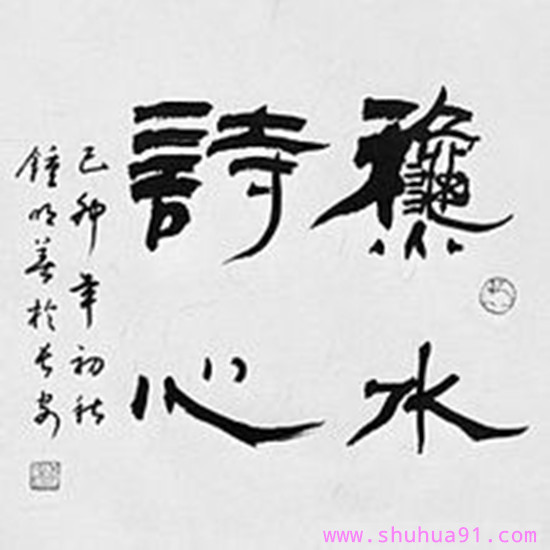 龝水
詩心
己卯年初秋
鐘明善於長安
www.shuhua91.com